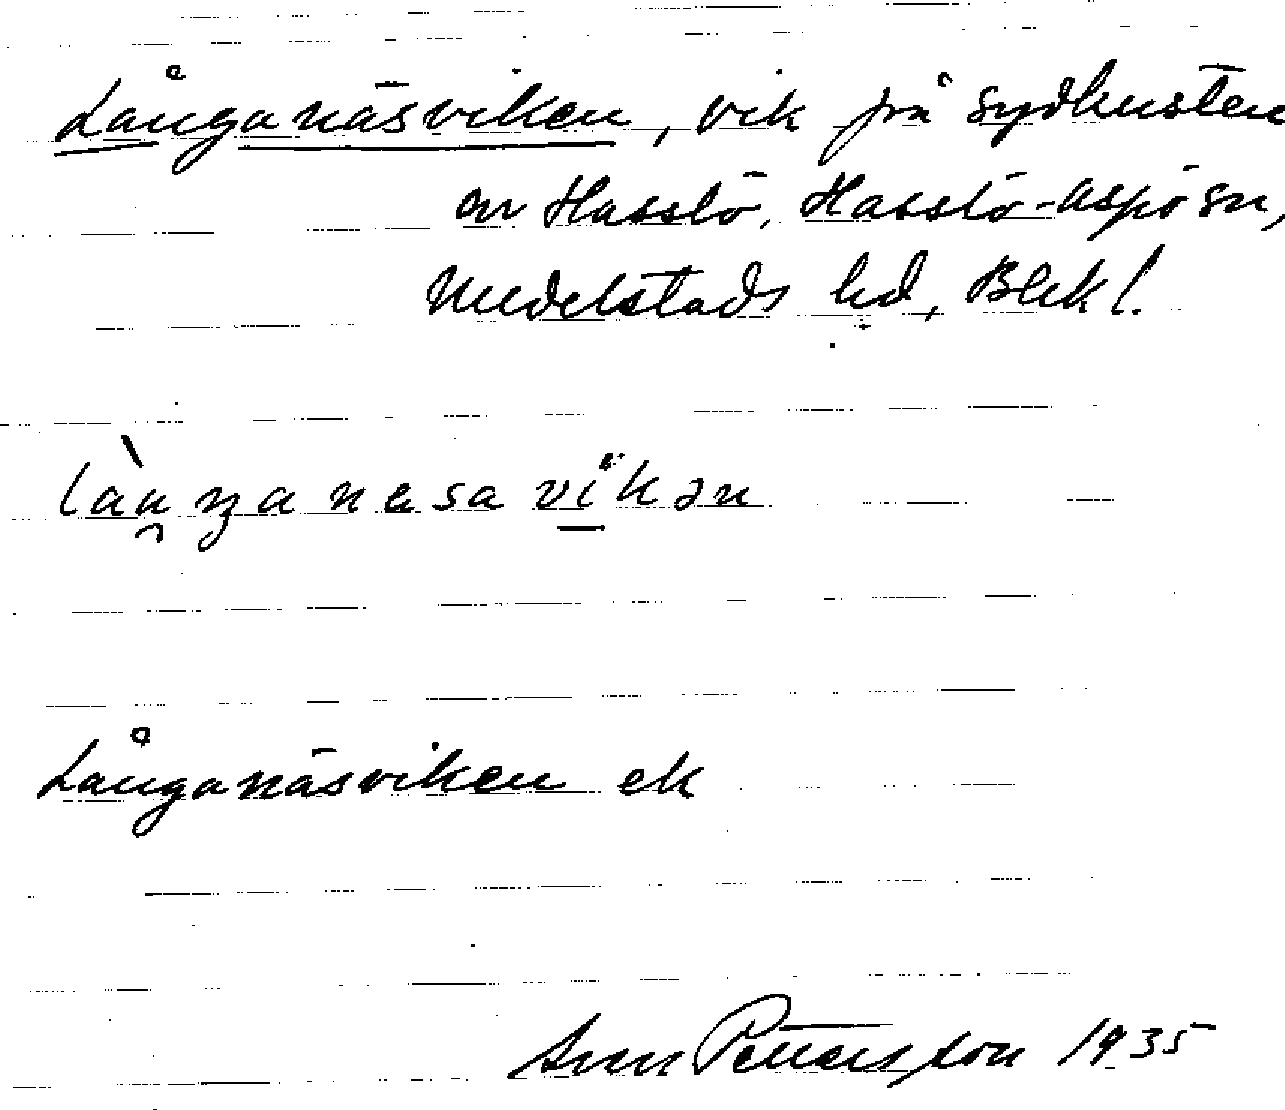 Långanäsviken, vik på sydkusten
av Hasslö, Hasslö-Aspö sn,
Medelstads hd, Blek l.
Långanäsviken ek
Pettersson 1935